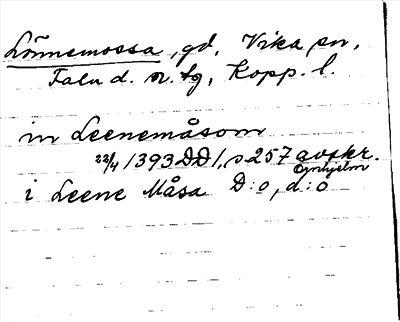 Lönnemossa, gd, Vika sn,
Falu d. n. tg, Kopp. l.
in Leenemåsom
22/4 1393 DD 1, s 257 avskr.
Örnhjelm
i Leene Måsa D:o, d:o